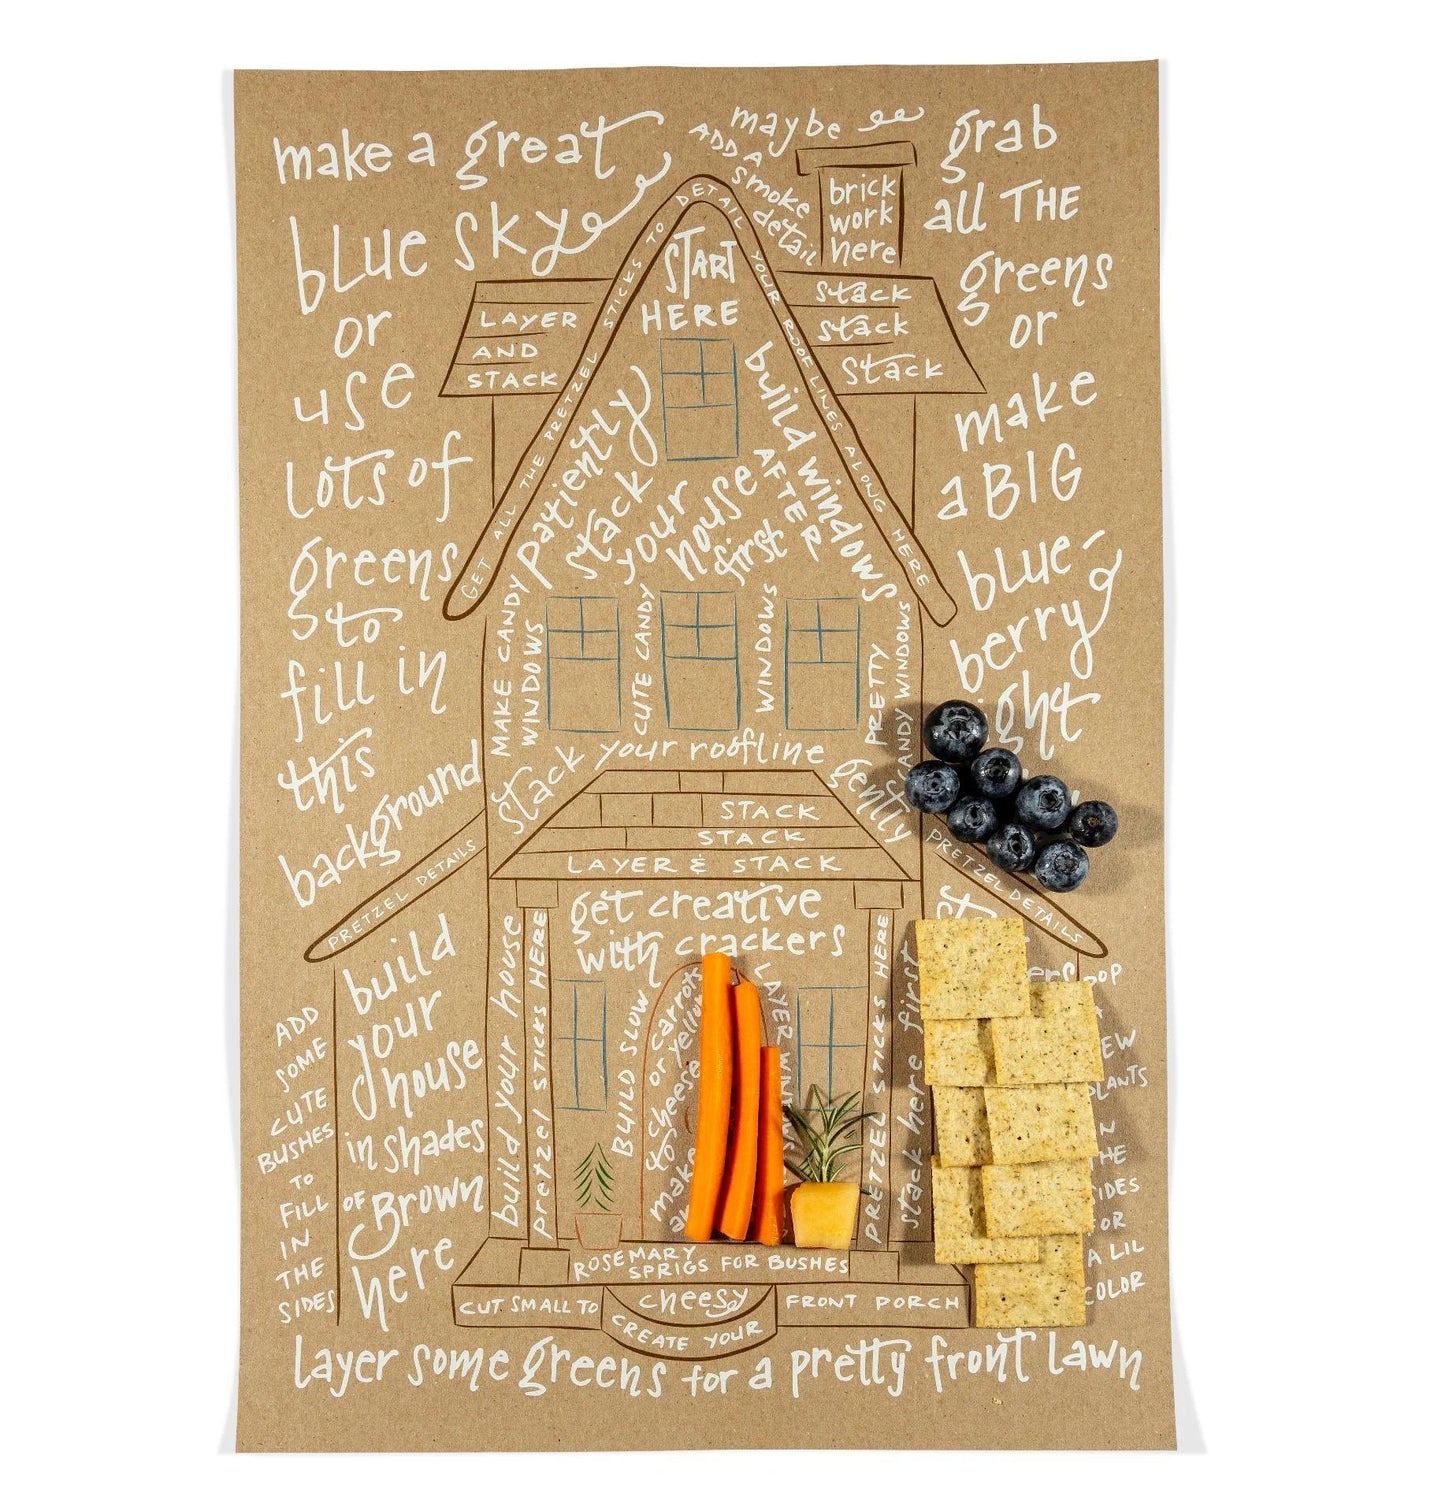 make a great
blue sky
or
use
lots of
greens
to
fill in
this
background
maybe
ADD A
smoke
detail
brick
work
here
grab
all THE
greens
or
make
a BIG
blue-
berry
START
HERE
LAYER
AND
STACK
stack
stack
stack
GET ALL THE PRETZEL STICKS TO DETAIL YOUR ROOF LINES ALONG HERE
patiently
stack
your
house
first
build windows
AFTER
MAKE CANDY
WINDOWS
CUTE CANDY
WINDOWS
PRETTY
CANDY WINDOWS
stack your roofline gently
STACK
STACK
LAYER & STACK
PRETZEL DETAILS
PRETZEL DETAILS
get creative
with crackers
build
your
house
in shades
OF Brown
here
ADD
SOME
CUTE
BUSHES
TO
FILL
IN
THE
SIDES
build your house
pretzel STICKS HERE
BUILD SLOW
cheese or yellow
carrots
make
LAYER
PRETZEL STICKS HERE
stack here first
COLOR
ROSEMARY
SPRIGS FOR BUSHES
CUT SMALL TO
cheesy
CREATE YOUR
FRONT PORCH
layer some greens for a pretty front lawn